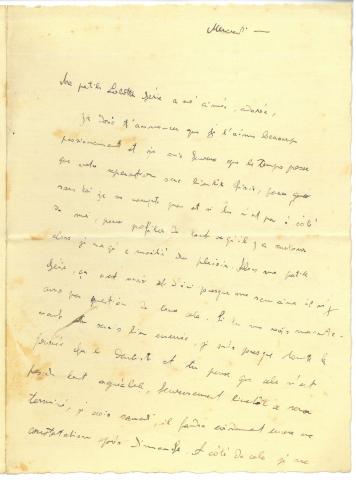 Mercredi —
Ma petite Colette chérie à moi aimée, adorée,
je dois t'annoncer que je t'aime beaucoup
passionnément et je suis heureux que le temps passe
que notre séparation sera bientôt finie, parce que
sans toi je ne compte pas et si tu n'es pas à côté
de moi, pour profiter de tout ce qu'il y a autour
alors je n'ai qu'à moitié du plaisir. Alors ma petite
chérie, ça c'est mais et d'ici presque une semaine il n'y
aura pas question de tout cela. Si tu me vois mainte-
nant tu serais bien énervée, je suis presque toute la
journée chez le dentiste et tu penses que cela n'est
pas du tout agréable, heureusement bientôt ce sera
terminé, je crois samedi, il faudra évidemment encore une
constatation après Dimanche. A côté de cela je me